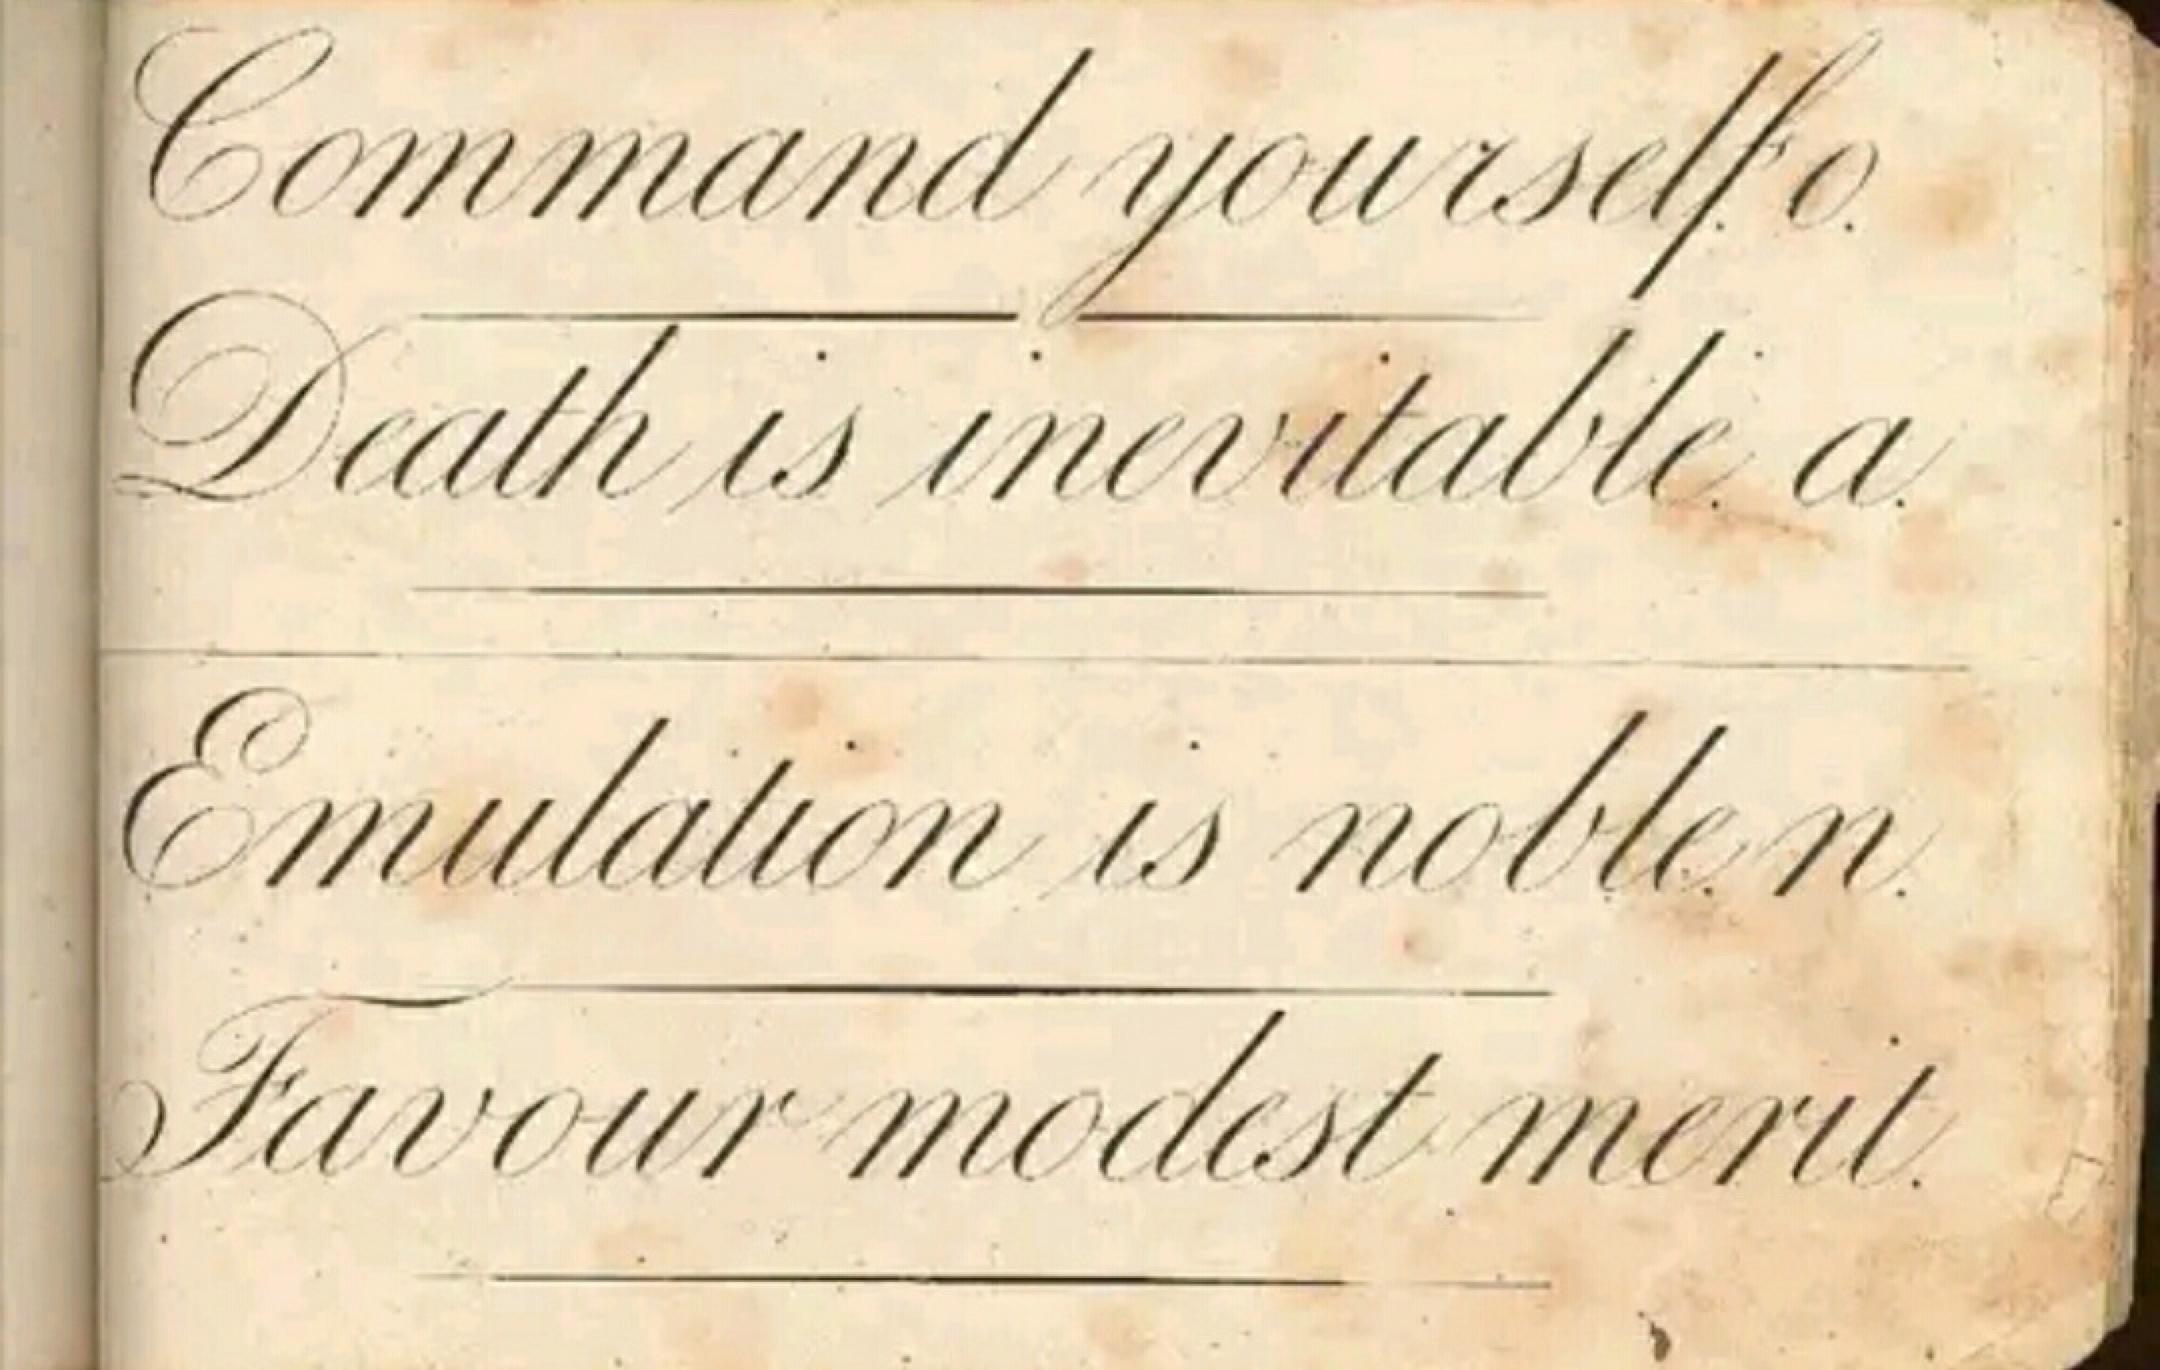 Command yourself. o.
Death is inevitable. a.
Emulation is noble. n.
Favour modest merit.